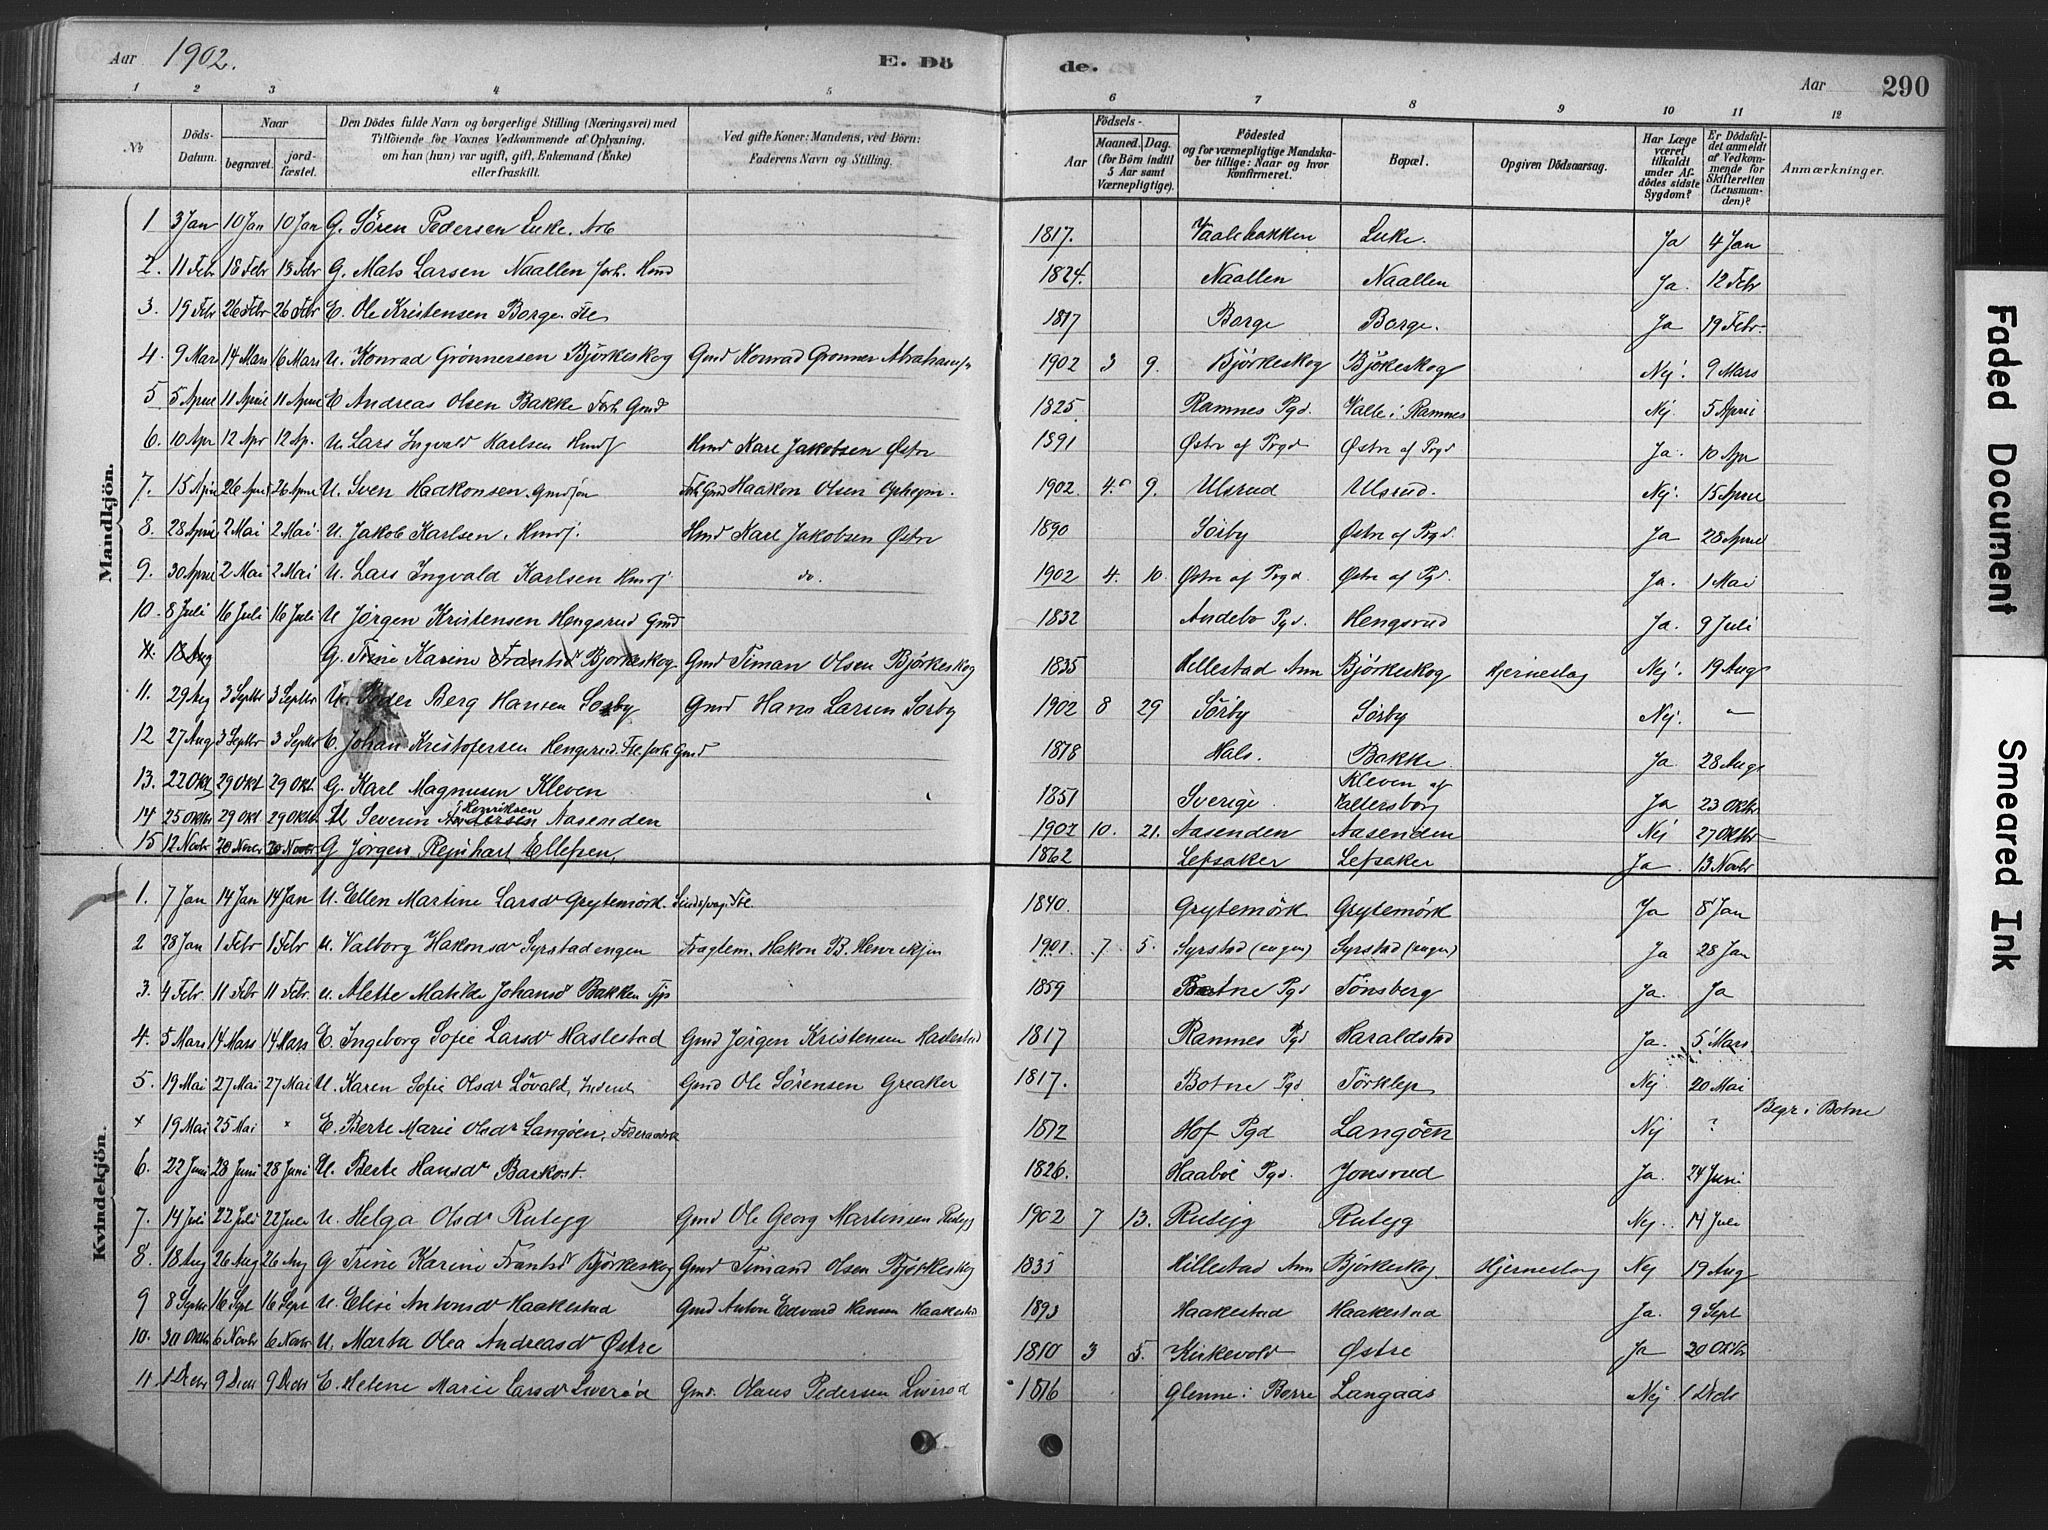 Aar 1902. E. Dö de. Aar 290
1 2 3 4 5 6 7 8 9 10 11 12
№
Döds-Datum.
Naar
begravet. jord-fæstet.
Den Dödes fulde Navn og borgerlige Stilling (Næringsvei) med
Tilföiende for Voxnes Vedkommende af Oplysning,
om han (hun) var ugift, gift, Enkemand (Enke)
eller fraskilt.
Ved gifte Koner: Mandens, ved Börn:
Faderens Navn og Stilling.
Födsels-
Aar Maaned. Dag.
(for Börn indtil
5 Aar samt
Værnepligtige).
Födested
og for værnepligtige Mandska-
ber tillige: Naar og hvor
konfirmeret.
Bopæl.
Opgiven Dödsaarsag.
Har Læge
været
tilkaldt
under Af-
dödes sidste
Sygdom?
Er Dödsfal-
det anmeldt
af Vedkom-
mende for
Skifteretten
(Lensman-
den)?
Anmærkninger.
Mandkjön.
1 3 Jan 10 Jan 10 Jan G. Sören Pedersen Luke. Arb 1817. Vaalebakken Luke. Ja 4 Jan
2. 11 Febr 18 Febr 18 Febr G. Mats Larsen Naallen forh. Hmd 1824. Naallen Naallen Ja. 12 Febr
3. 19 Febr 26 Febr 26 Febr E. Ole Kristensen Borge. Fte 1817 Borge Borge. Ja 19 Febr.
4. 9 Mars 14 Mars 16 Mars U. Konrad Grönnersen Björkeskog Gmd Konrad Gronner Abrahamsn 1902 3 9. Björkeskog Björkeskog Nej. 9 Mars
5. 5 April 11 April 11 April E Andreas Olsen Bakke Forh Gmd 1825 Ramnes Pgd. Valle i Ramnes Nej. 5 April
6. 10 Apr 12 Apr 12 Ap. U. Lars Ingvald Karlsen Hmdj Hmd Karl Jakobsen Østre 1891 Østre af Prgd Østre af Prgd Ja. 10 Apr
7. 15 April 26 April 26 April U. Sven Haakonsen. Gmdsön Forh Gmd Haakon Olsen Opheim. 1902. 4. 9. Ulsrud Ulsrud. Nej. 15 April
8. 28 April 2 Mai 2 Mai U. Jakob Karlsen. Hmdj. Hmd Karl Jakobsen Østre 1890 Sörby Østre af Prgd. Ja 28 April
9. 30 April 2 Mai 2 Mai U. Lars Ingvald Karlsen Hmdj. do. 1902 4. 10. Østre af Prgd. Østre af Pgd. Ja. 1 Mai
10. 8 Juli 16 Juli 16 Juli U Jörgen Kristensen Hengsrud Gmd 1832 Andebo Pgd. Hengsrud Ja. 9 Juli
11. 18 Aug G. Trine Karine Frantsdr Bjorkeskog Gmd Timan Olsen Björkeskog 1835 Hillestad Ann Björkeskog Hjerneslag Nej. 19 Aug
11. 29 Aug 3 Septbr 3 Septbr U. Peder Berg Hansen Sorby Gmd Hans Larsen Sorby 1902 8 29 Sörby Sörby Nej. —
12 27 Aug 3 Septbr 3 Septbr E. Johan Kristofersen Hengsrud. Fte forh Gmd 1878 Hals. Bakke. Ja 28 Aug
13. 22 Okt 29 Okt 29 Okt. G. Karl Magnusen Kleven 1851 Sverige. Kleven af Valtersborg Ja 23 Oktbr
14 25 Oktbr 29 Okt 29 Oktb U Severin Andersen Henriksen Aasenden 1902 10. 21. Aasenden Aasenden Nej 27 Oktbr
15 12 Novbr 20 Novbr 20 Novbr G Jörgen Reinhart Ellefsen. 1862 Lefsaker Lefsaker Ja. 13 Novbr
Kvindekjön.
1. 7 Jan 14 Jan 14 Jan U. Ellen Martine Larsdr Grytemörk. Fte. 1840. Grytemörk Grytemörk Ja 8 Jan
2 28 Jan 1 Febr 1 Febr U. Valborg Hakonsdr Syrstadengen Fragtem. Hakon B. Henriksen 1901. 7. 5. Syrstad (engen) Syrstad (engen) Ja 28 Jan
3. 4 Febr. 11 Febr 11 Febr. U. Alette Matilde Johansd Bakken Tjp 1859 Botne Pgd Tönsberg Ja. Ja
4. 5 Mars 14 Mars 14 Mars E. Ingeborg Sofie Larsdr Haslestad Gmd Jörgen Kristensen Haslestad 1817 Ramnes Pgd Haraldstad Ja. 5 Mars
5. 19 Mai 27 Mai 27 Mai U. Karen Sofie Olsdr Lövald, Inderst Gmd Ole Sörensen Greaker 1817. Botne Pgd Törklep Nej 20 Mai
x 19 Mai 25 Mai " E. Berte Marie Olsdr Langöen, 1872 Hof Pgd Langöen Nej ? Begr i Botne
6. 22 Juni 28 Juni 28 Juni U. Berte Hansdr Barkost. 1826. Haaböl Pgd. Jonsrud Ja. 24 Juni
7. 14 Juli 22 Juli 22 Juli U. Helga Olsdr Rutegg Gmd Ole Georg Martensen Rutegg 1902 7 13. Rutegg Rutegg Nej. 14 Juli
8. 18 Aug 26 Aug 26 Aug G Trine Karine Frantsd Björkeskog Gmd Timand Olsen Björkeskog 1835 Hillestad Ann Björkeskog Hjerneslag Nej 19 Aug
9 8 Septbr 16 Sept 16 Sept U. Elise Antonsdr Haakestad Gmd Anton Edvard Hansen Haakestad 1893 Haakestad Haakestad Ja. 9 Sept
10. 30 Oktbr 6 Novbr 6 Novbr U. Marta Olea Andreasdr Østre 1810 3 5. Kirkevold Østre Ja 20 Oktbr
11. 1 Decbr 9 Decb 9 Decbr E. Helene Marie Larsdr Liveröd Gmd. Olaus Pedersen Liverod 1816 Glenne i Borre Langaas Nej. 1 Decbr
Faded Document
Smeared Ink